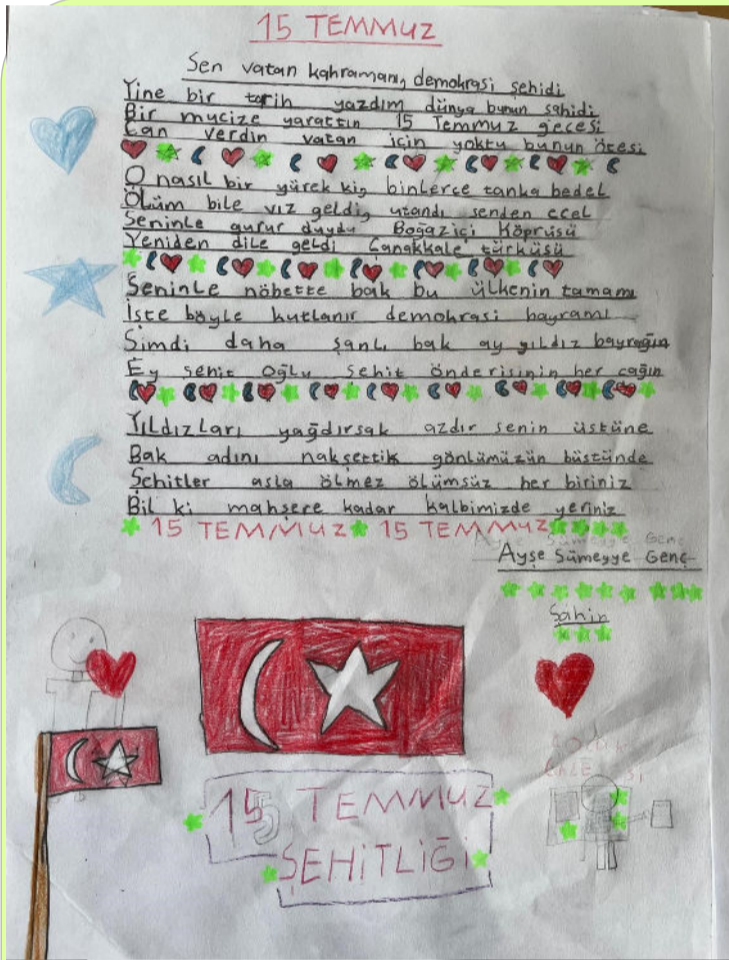 15 TEMMUZ
Sen vatan kahramanı, demokrasi şehidi
Yine bir tarih yazdım dünya bunun şahidi
Bir mucize yarattın 15 Temmuz gecesi
Can verdin vatan için yoktu bunun ötesi
O nasıl bir yürek ki, binlerce tanka bedel
Ölüm bile vız geldi, utandı senden ecel
Seninle gurur duydu Boğaziçi Köprüsü
Yeniden dile geldi Çanakkale türküsü
Seninle nöbette bak bu ülkenin tamamı
İşte böyle kutlanır demokrasi bayramı
Şimdi daha şanlı bak ay yıldız bayrağın
Ey şehit oğlu şehit önderisinin her çağın
Yıldızları yağdırsak azdır senin üstüne
Bak adını nakşettik gönlümüzün büstünde
Şehitler asla ölmez ölümsüz her biriniz
Bil ki mahşere kadar kalbimizde yeriniz
15 TEMMUZ 15 TEMMUZ
Ayşe Sümeyye Genç
Ayşe Sümeyye Genç
Şahin
15 TEMMUZ
ŞEHİTLİĞİ